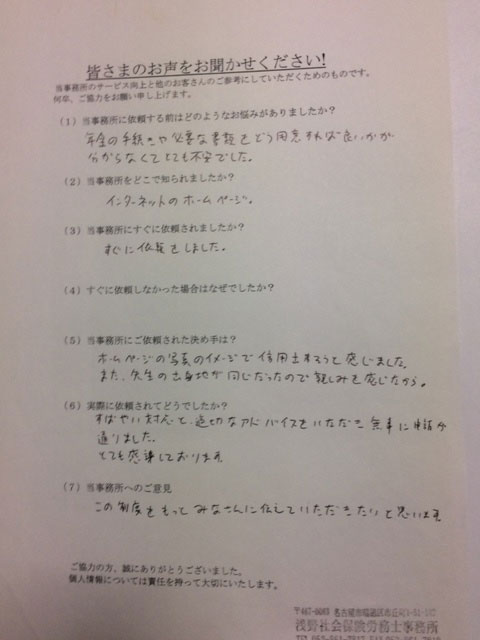 皆さまのお声をお聞かせください!
当事務所のサービス向上と他のお客さんのご参考にしていただくためのものです。
何卒、ご協力をお願い申し上げます。
(1)当事務所に依頼する前はどのようなお悩みがありましたか?
年金の手続きや必要な書類をどう用意すれば良いかが
分からなくてとても不安でした。
(2)当事務所をどこで知られましたか?
インターネットのホームページ。
(3)当事務所にすぐに依頼されましたか?
すぐに依頼をしました。
(4)すぐに依頼しなかった場合はなぜでしたか?
(5)当事務所にご依頼された決め手は?
ホームページの写真のイメージで信用出来そうと感じました。
また、先生の出身地が同じだったので親しみを感じたから。
(6)実際に依頼されてどうでしたか?
すばやい対応と、適切なアドバイスをいただき無事に申請が
通りました。
とても感謝しております
(7)当事務所へのご意見
この制度をもっとみなさんに伝えていただきたいと思います
ご協力の方、誠にありがとうございました。
個人情報については責任を持って大切にいたします。
浅野社会保険労務士事務所